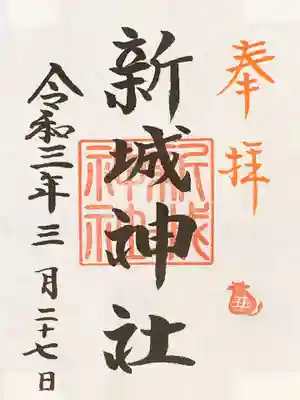 奉拝
新城神社
新城神社
丑
令和三年三月二十七日